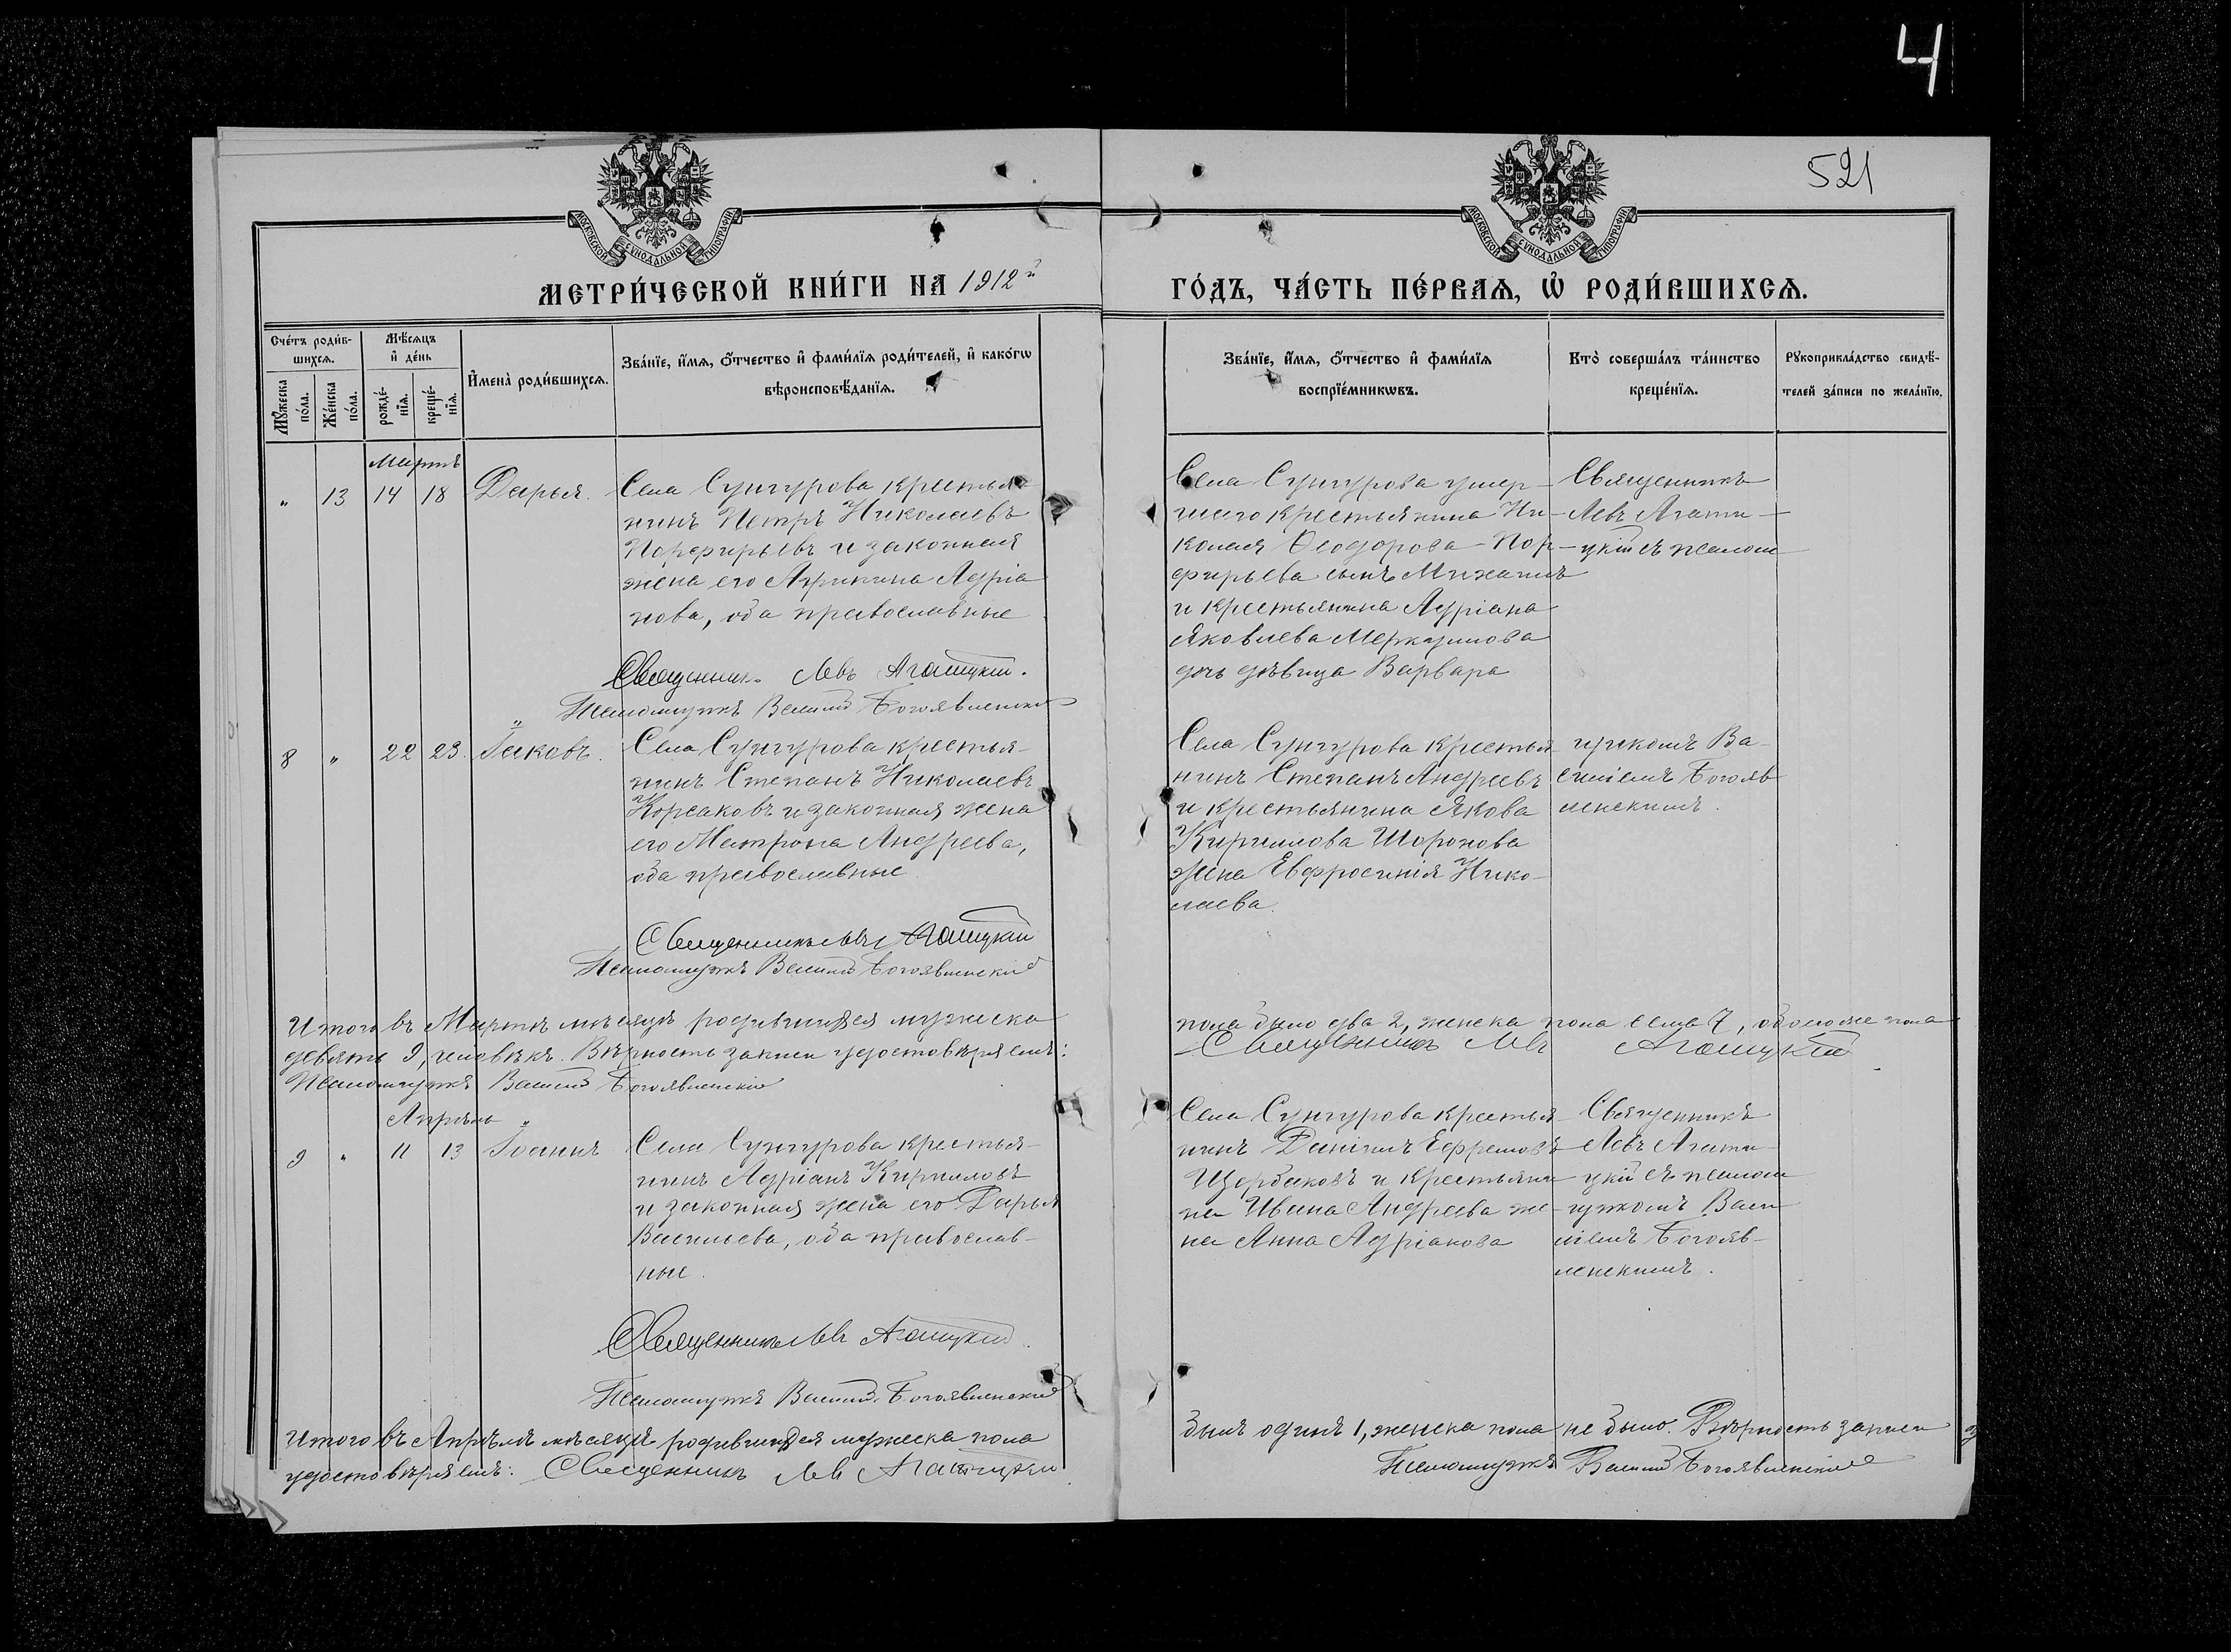 4
521
МОСКОВСКОЙ СѴНОДАЛЬНОЙ ТИПОГРАФІИ
МОСКОВСКОЙ СѴНОДАЛЬНОЙ ТИПОГРАФІИ
МЕТРИ́ЧЕСКОЙ КНИ́ГИ НА 1912й
ГО́ДЪ, ЧА́СТЬ ПЕ́РВАѦ, Ѡ҆ РОДИ́ВШИХСѦ.
Сче́тъ роди́в-
шихсѧ.
Мѣ́сѧцъ
и҆ де́нь
Мꙋ́жеска по́ла.
Же́нска по́ла.
рожде́-
нїѧ.
креще́-
нїѧ.
И҆мена̀ роди́вшихсѧ.
Зва́нїе, и҆́мѧ, ѻ҆́тчество и҆ фами́лїѧ роди́телей, и҆ како́гѡ
вѣроисповѣ́данїѧ.
Зва́нїе, и҆́мѧ, ѻ҆́тчество и҆ фами́лїѧ
воспрїе́мникѡвъ.
Кто̀ соверша́лъ та́инство
креще́нїѧ.
Рꙋкоприкла́дство свидѣ́-
телей за́писи по жела́нїю.
Мартъ
" 13 14 18 Дарья.
Села Сунгурова крестья-
нинъ Петръ Николаевъ
Порфирьевъ и законная
жена его Агрипина Адріа
нова, оба православные
Священникъ Левъ Агатицкій.
Псаломщикъ Василій Богоявленскій
Села Сунгурова умер-
шего крестьянина Ни-
колая Ѳеодорова Пор-
фирьева сынъ Михаилъ
и крестьянина Адріана
Яковлева Меркулова
дочь дѣвица Варвара
Священникъ
Левъ Агати-
цкій съ псалом
8 " 22 23. Іаковъ.
Села Сунгурова крестья-
нинъ Степанъ Николаевъ
Корсаковъ и законная жена
его Матрона Андреева,
оба православные.
Священникъ Левъ Агатицкій
Псаломщикъ Василій Богоявленскій
Села Сунгурова крестья
нинъ Степанъ Андреевъ
и крестьянина Якова
Кириллова Шоронова
жена Евфросинія Нико-
лаева.
щикомъ Ва-
силіемъ Богояв-
ленскимъ.
Итого въ Мартѣ мѣсяцѣ родившихся мужеска
пола было два 2, женска пола семь 7, обоего же пола
девять 9, человѣкъ. Вѣрность записи удостовѣряемъ:
Священникъ Левъ Агатицкій
Псаломщикъ Василій Богоявленскій
Апрѣль
9 " 11 13 Іоаннъ
Села Сунгурова крестья-
нинъ Адріанъ Кирилловъ
и законная жена его Дарья
Васильева, оба православ-
ные.
Священникъ Левъ Агатицкій.
Псаломщикъ Василій Богоявленскій
Села Сунгурова крестья
нинъ Даніилъ Ефремовъ
Щербаковъ и крестьяни
на Ивана Андреева же-
на Анна Адріанова
Священникъ
Левъ Агати-
цкій съ псалом
щикомъ Васи
ліемъ Богояв-
ленскимъ.
Итого въ Апрѣлѣ мѣсяцѣ родившихся мужеска пола
былъ одинъ 1, женска пола не было. Вѣрность записи
удостовѣряемъ: Священникъ Левъ Агатицкій
Псаломщикъ Василій Богоявленскій